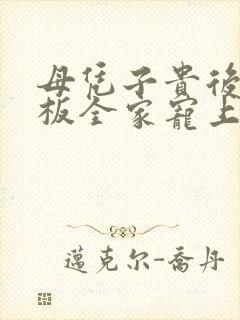 母凭子貴後
板全家寵上
邁克尔-喬丹